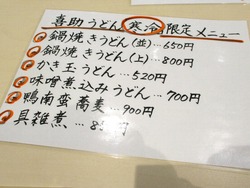 喜助うどん 寒冷 限定メニュー
鍋焼きうどん(並)…650円
鍋焼きうどん(上)…800円
かき玉うどん …520円
味噌煮込みうどん…700円
鴨南蛮蕎麦 …900円
具雑煮 …